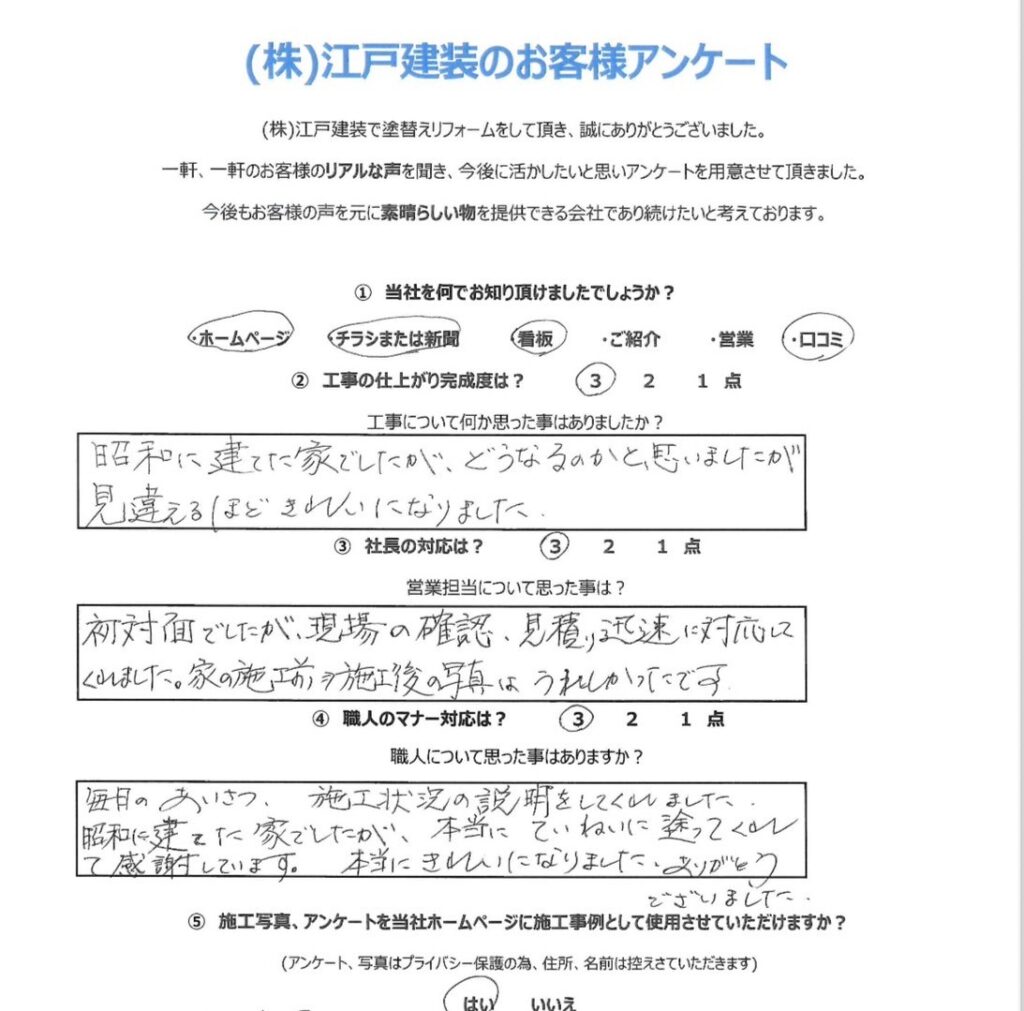 (株)江戸建装のお客様アンケート
(株)江戸建装で塗替えリフォームをして頂き、誠にありがとうございました。
一軒、一軒のお客様のリアルな声を聞き、今後に活かしたいと思いアンケートを用意させて頂きました。
今後もお客様の声を元に素晴らしい物を提供できる会社であり続けたいと考えております。
① 当社を何でお知り頂けましたでしょうか？
・ホームページ ・チラシまたは新聞 ・看板 ・ご紹介 ・営業 ・口コミ
② 工事の仕上がり完成度は？ 3 2 1 点
工事について何か思った事はありましたか？
昭和に建てた家でしたが、どうなるのかと、思いましたが
見違えるほど きれいになりました.
③ 社長の対応は？ 3 2 1 点
営業担当について思った事は？
初対面でしたが、現場の確認、見積り迅速に対応して
くれました。家の施工前 施工後の写真は うれしかったです.
④ 職人のマナー対応は？ 3 2 1 点
職人について思った事はありますか？
毎日の あいさつ、 施工状況の説明をしてくれました.
昭和に建てた 家でしたが、 本当に ていねいに 塗ってくれ
て感謝しています。 本当に きれいになりました. ありがとう
ございました.
⑤ 施工写真、アンケートを当社ホームページに施工事例として使用させていただけますか？
(アンケート、写真はプライバシー保護の為、住所、名前は控えさていただきます)
はい いいえ